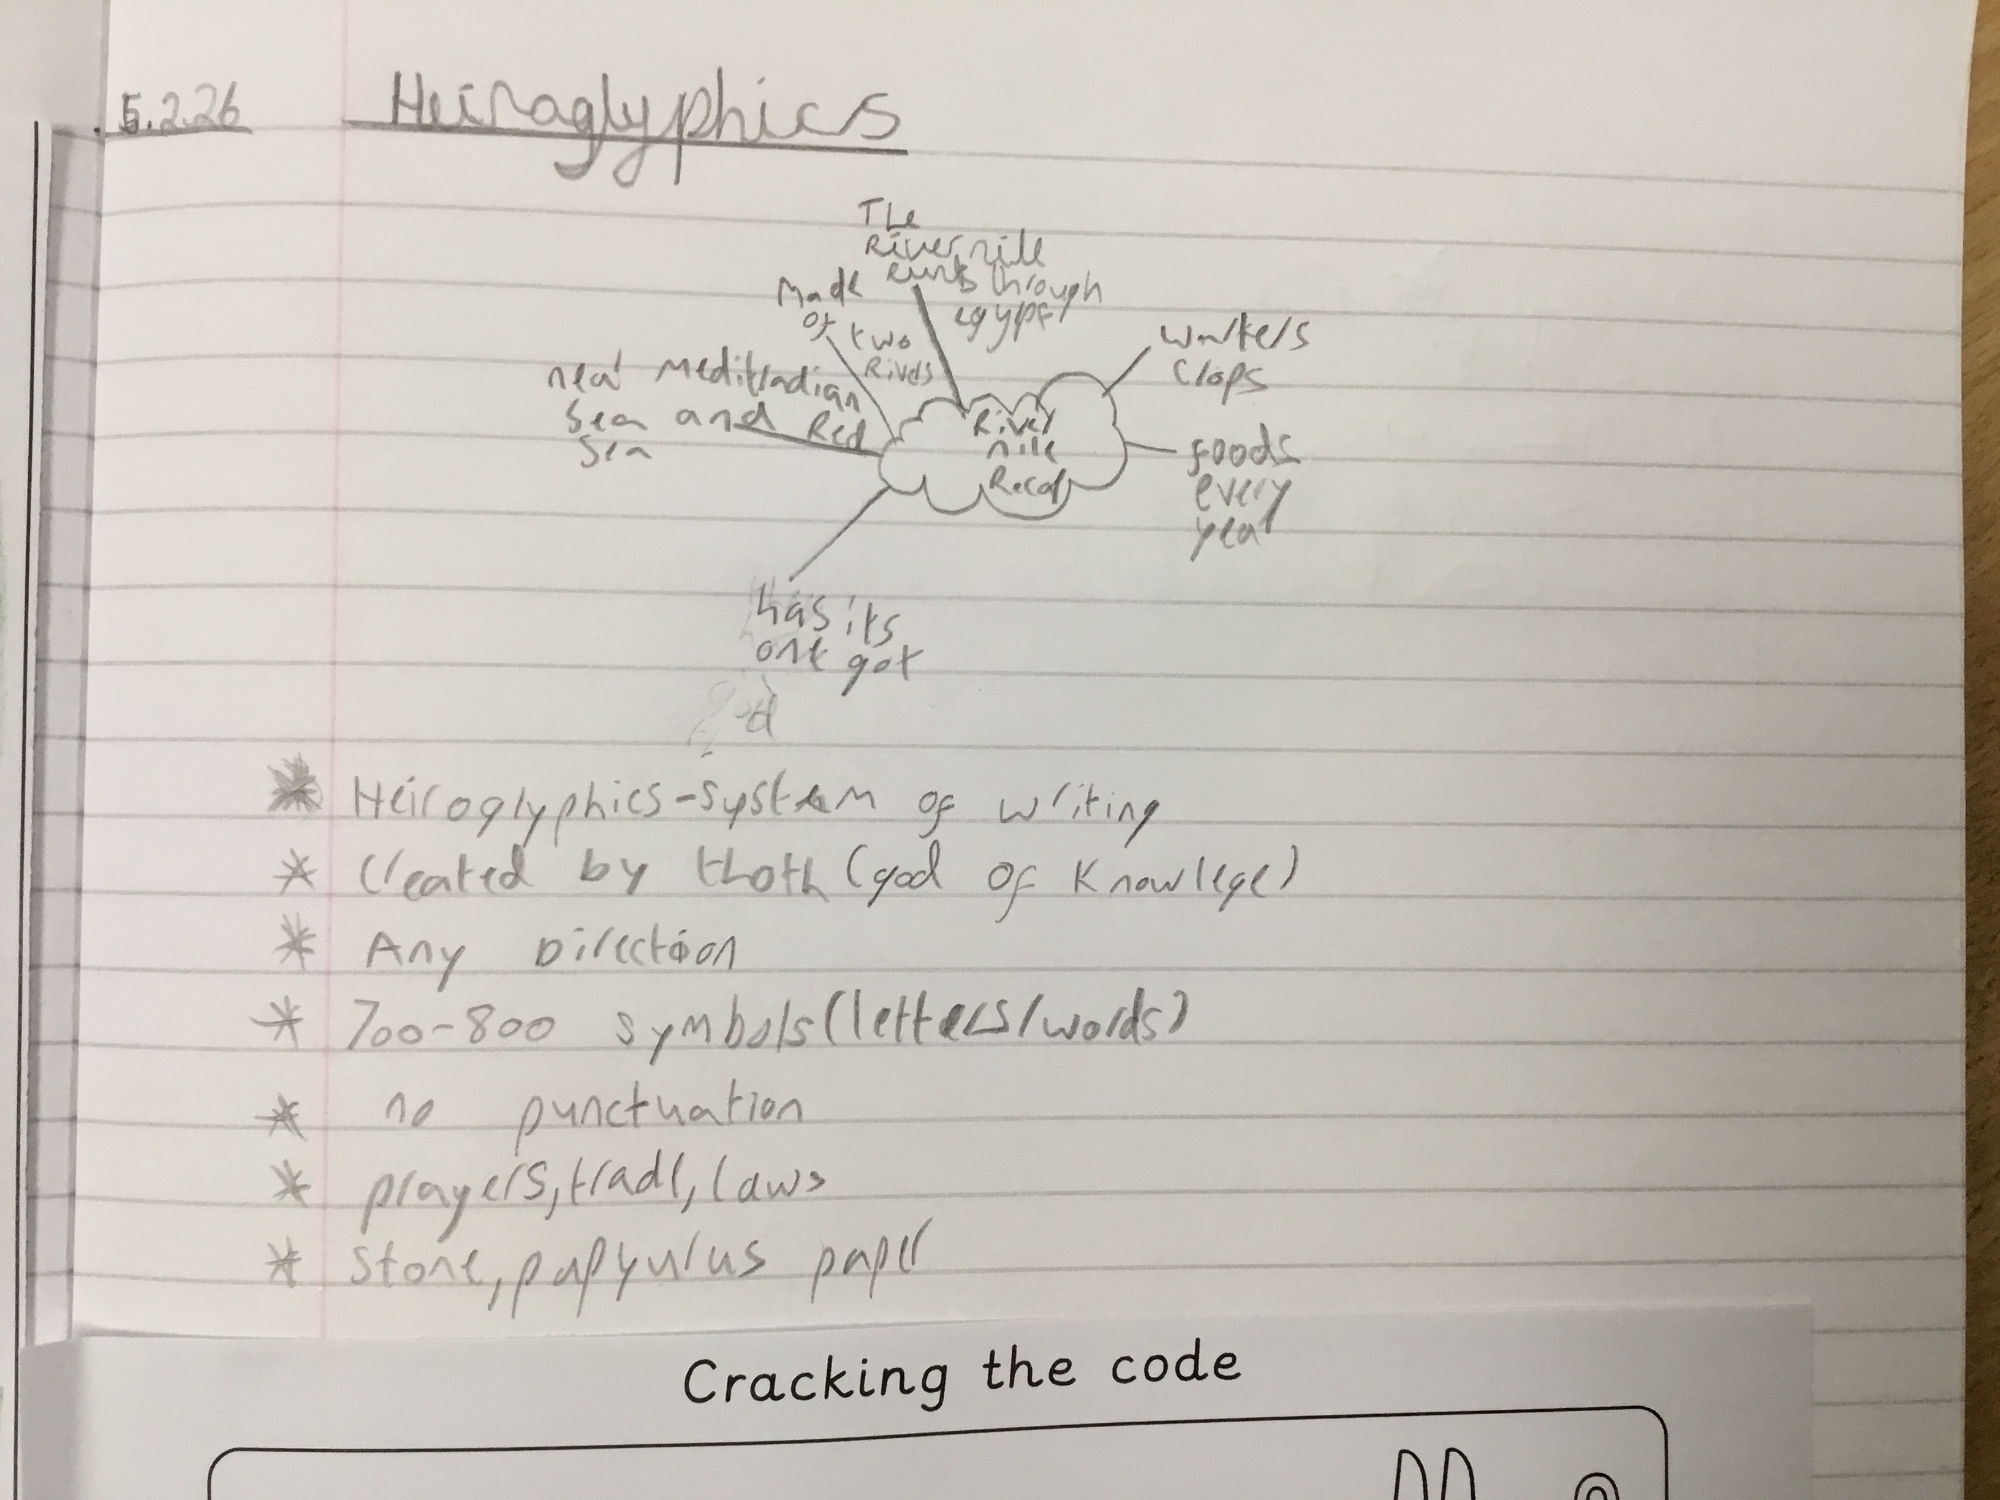 5.2.26 Heiroglyphics
The
River nile
runs through
egypt
Made
of two
Rivers
near Meditradian
Sea and Red
Sea
waters
crops
River
nile
Recap
foods
every
year
has its
one got
d
* Heiroglyphics-system of writing
* Created by thoth (god of Knowlege)
* Any Direction
* 700-800 symbols (letters/words)
* no punctuation
* prayers, trade, laws
* Stone, papyurus paper
Cracking the code